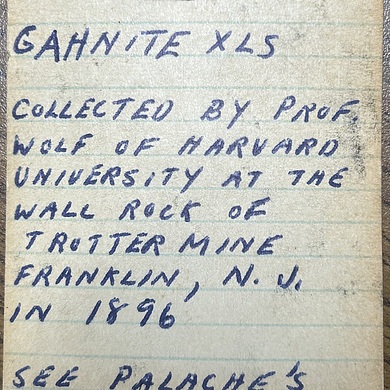 GAHNITE XLS
COLLECTED BY PROF.
WOLF OF HARVARD
UNIVERSITY AT THE
WALL ROCK OF
TROTTER MINE
FRANKLIN, N.J.
IN 1896
SEE PALACHE'S